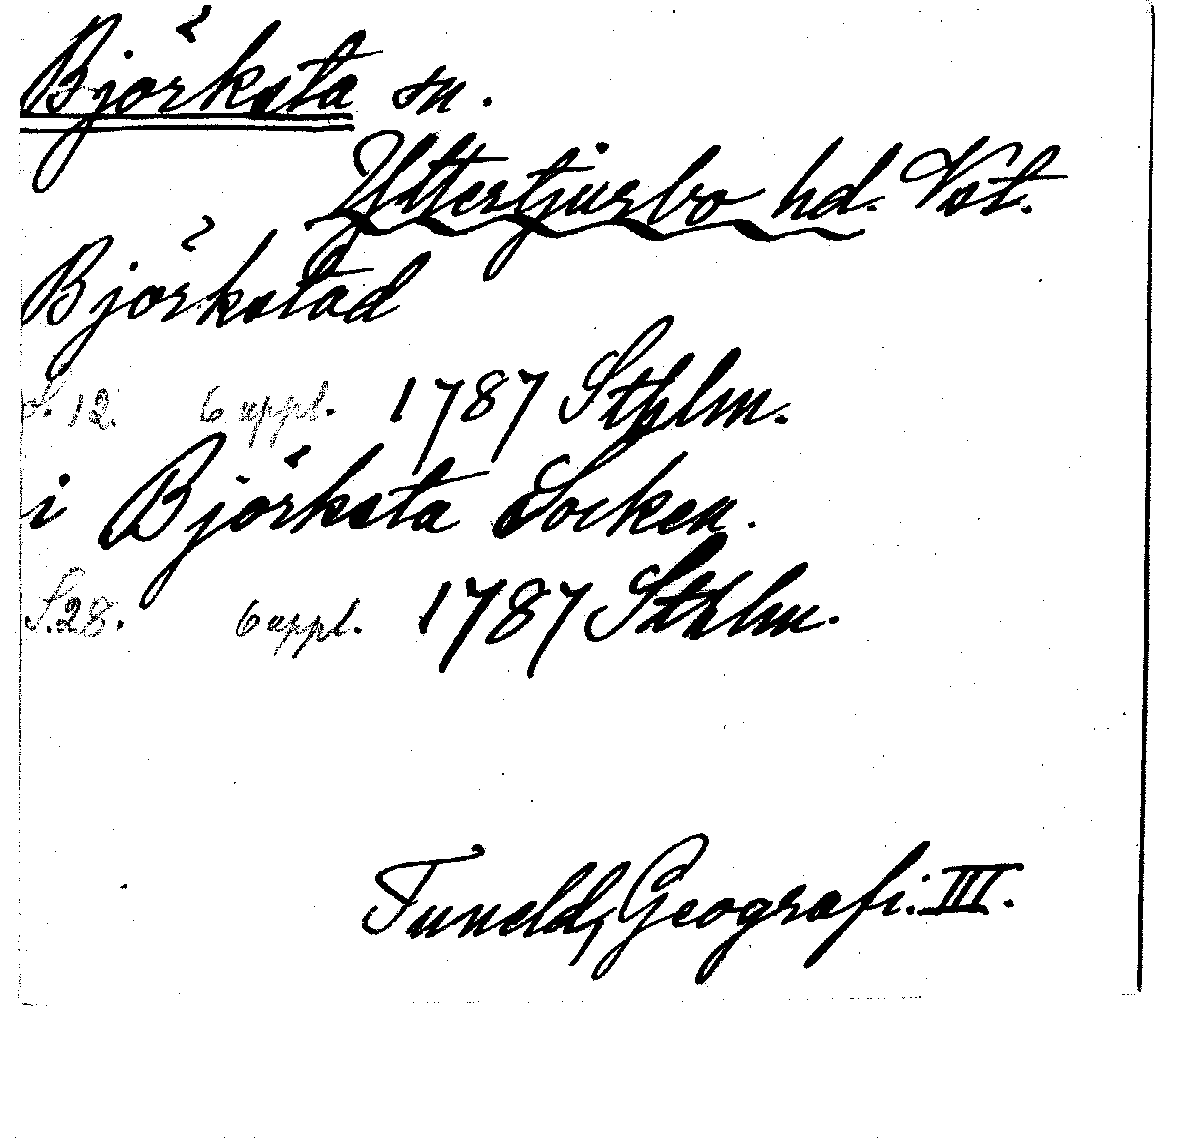 Björksta sn.
Yttertjurbo hd. Vst.
Björkstad
S. 12. 6 uppl. 1787 Sthlm.
i Björksta Socken.
S. 28. 6 uppl. 1787 Sthlm.
Tuneld, Geografi. III.